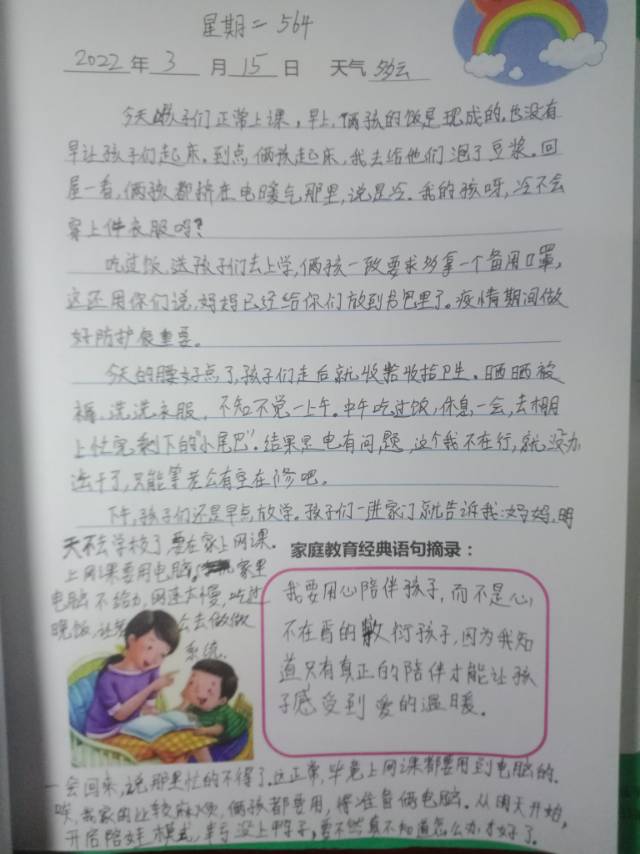 星期二 564
2022年3月15日 天气多云
今天孩子们正常上课,早上,俩孩的饭是现成的,也没有
早让孩子们起床,到点俩孩起床,我去给他们泡了豆浆。回
屋一看,俩孩都挤在电暖气那里,说是冷。我的孩呀,冷不会
穿上件衣服吗?
吃过饭,送孩子们去上学,俩孩一致要求多拿一个备用口罩,
这还用你们说,妈妈已经给你们放到书包里了。疫情期间做
好防护很重要。
今天的腰好点了,孩子们走后就收拾收拾卫生。晒晒被
褥,洗洗衣服,不知不觉一上午。中午吃过饭,休息一会,去棚
上忙完剩下的"小尾巴"。结果电有问题,这个我不在行,就没办
法干了,只能等老公有空在修吧。
下午,孩子们还是早点放学。孩子们一进家门就告诉我:妈妈,明
天不去学校了,要在家上网课。
上网课要用电脑,家里
电脑不给力,网速太慢,吃过
晚饭,让老公去做做
系统。
家庭教育经典语句摘录:
我要用心陪伴孩子,而不是心
不在焉的敷衍孩子,因为我知
道只有真正的陪伴才能让孩
子感受到爱的温暖。
一会回来,说那里忙的不得了。这正常,毕竟上网课都要用到电脑的。
唉,我家的比较麻烦,俩孩都要用,得准备俩电脑。从明天开始,
开启陪娃模式,幸亏没上鸭子,要不然真不知道怎么办才好了。